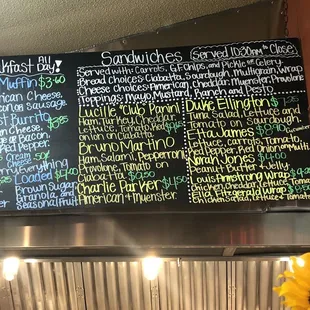 kfast All Day!
Muffin $3.60
erican Cheese,
Bacon or Sausage
st Burrito
on Cheese,
acon or
Red Pepper
Cream 50¢
Everything
Loaded $4.60
Brown Sugar
Granola, and
Seasonal Fruit
Sandwiches Served 10:30am - Close
Served with: Carrots, G.F. Chips, and Pickle or Celery
Bread Choices: Ciabatta, Sourdough, Multigrain, Wrap
Cheese choices: American, Cheddar, Muenster, Provolone
Toppings: Mayo, Mustard, Ranch and Pesto
"Lucille" Club Panini
Ham, Turkey, Cheddar,
Lettuce, Tomato
Bruno Martino
Ham, Salami, Pepperoni
Provolone, Tomato on
Ciabatta $9.50
Charlie Parker $4.50
American + Muenster
Duke Ellington
Tuna Salad, Lettuce and
Tomato on Sourdough
Etta James
Carrots, Tomato
Red Pepper, Red Onion on Multi
Norah Jones $4.00
Peanut Butter + Jelly
Louis Armstrong Wrap
Chicken, Cheddar, Lettuce, Tomato
Ella Fitzgerald Wrap
Chicken Salad, Lettuce, Tomato